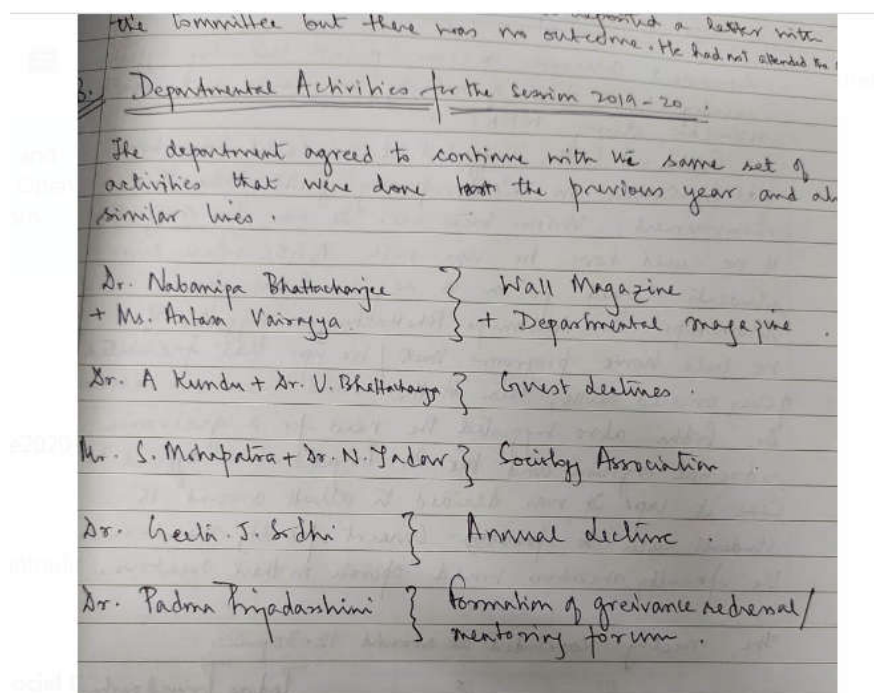 deposited a letter with
the Committee but there was no outcome. He had not attended the
3. Departmental Activities for the Session 2019-20.
The department agreed to continue with the same set of
activities that were done the previous year and
similar lines.
Dr. Nabanipa Bhattacharjee } Wall Magazine
+ Ms. Antara Vairagya } + Departmental magazine.
Dr. A Kundu + Dr. V. Bhattacharya } Guest Lectures.
Mr. S. Mohapatra + Dr. N. Yadav } Sociology Association.
Dr. Geeta. J. Sodhi } Annual Lecture.
Dr. Padma Priyadarshini } Formation of greivance redressal/
mentoring forum.